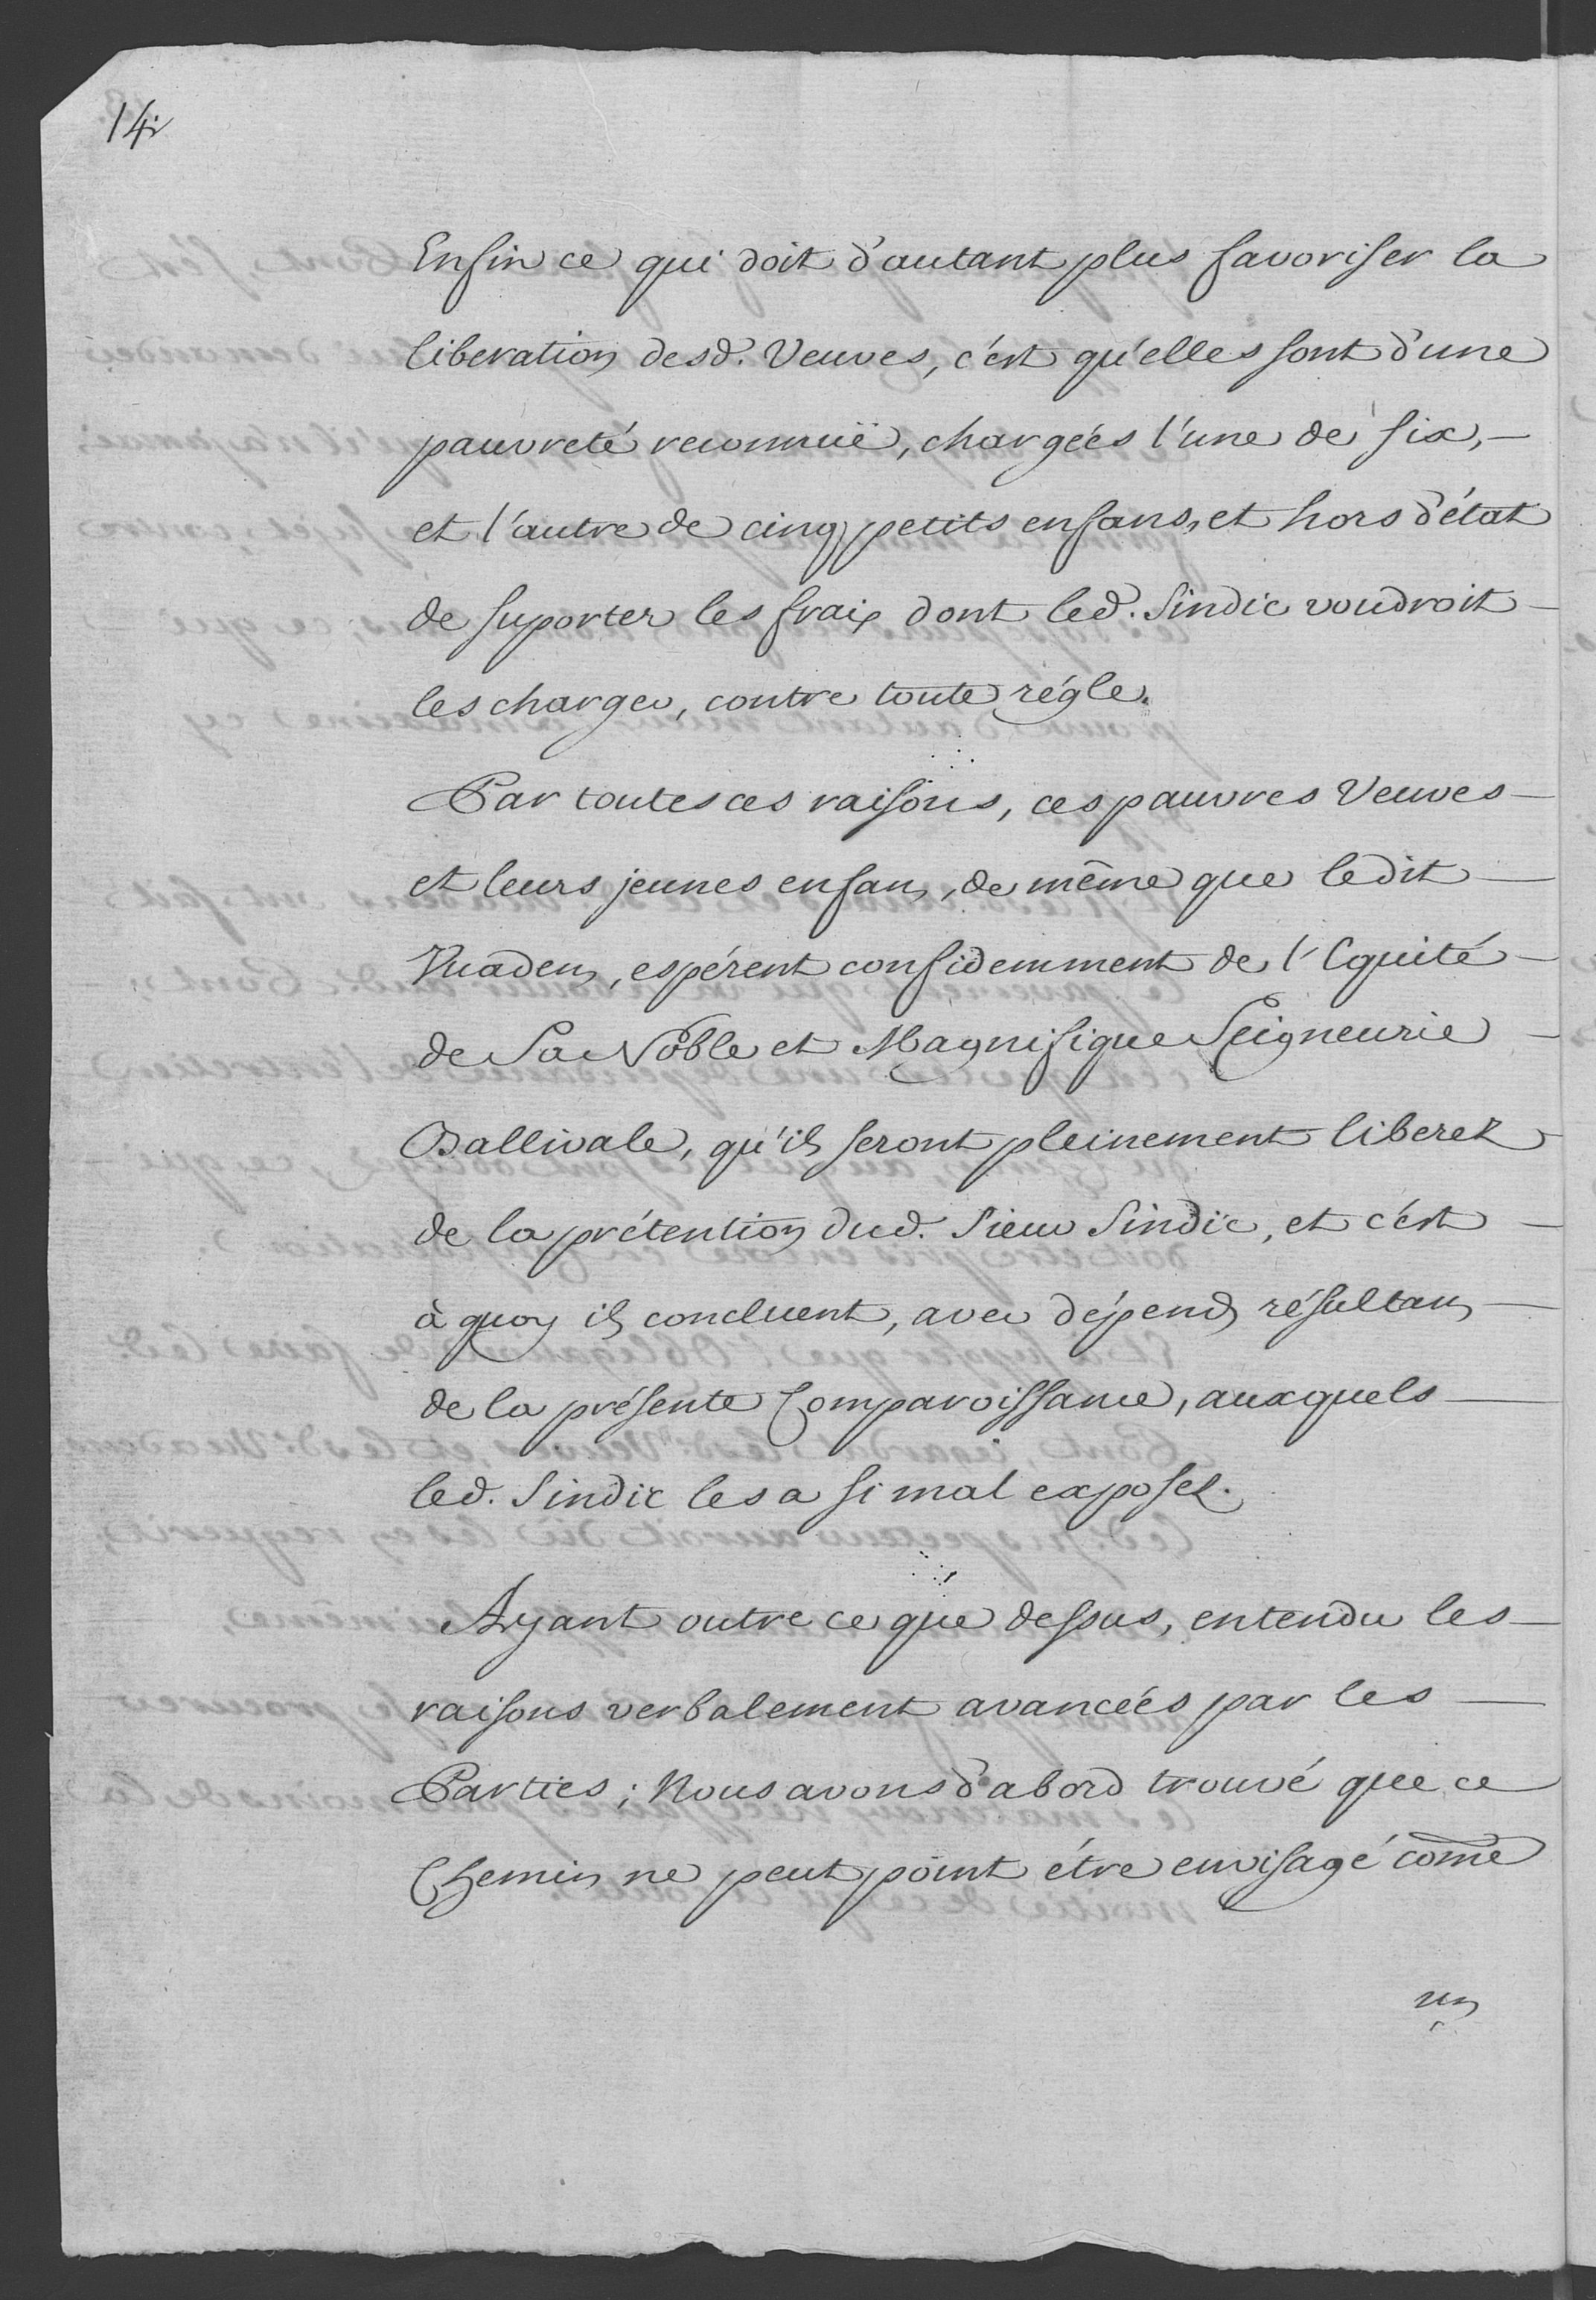 14
Enfin ce qui doit d'autant plus favoriser la
liberation desd. Veuves, c'est qu'elles sont d'une
pauvreté reconnuë, chargées l'une de six,—
et l'autre de cinq petits enfans, et hors d'état
de suporter les fraix dont led. Sindic voudroit—
les charger, contre toute régle.
Par toutes ces raisons, ces pauvres Veuves—
et leurs jeunes enfans, de même que ledit—
Vuadens, espérent confidemment de l'Equité—
de Sa Noble et Magnifique Seigneurie—
Ballivale, qu'ils seront pleinement liberez
de la prétention dud. Sieur Sindic, et c'est—
à quoy ils concluent, avec dépends résultans—
de la présente Comparoissance, auxquels—
led. Sindic les a si mal exposez.
Ayant outre ce que dessus, entendu les—
raisons verbalement avancées par les—
Parties; Nous avons d'abord trouvé que ce
Chemin ne peut point étre envisagé come
un